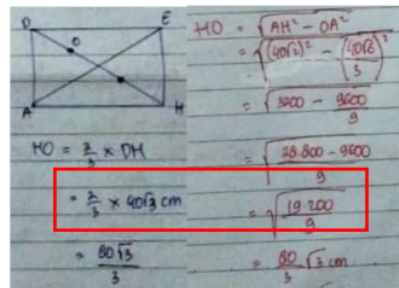 D E
O
A H
HO = 2/3 × DH
= 2/3 × 40√3 cm
= 80√3/3
HO = √(AH² - OA²)
= √((40√2)² - (40√6/3)²)
= √(3200 - 9600/9)
= √((28.800 - 9600)/9)
= √(19.200/9)
= 80/3 √3 cm